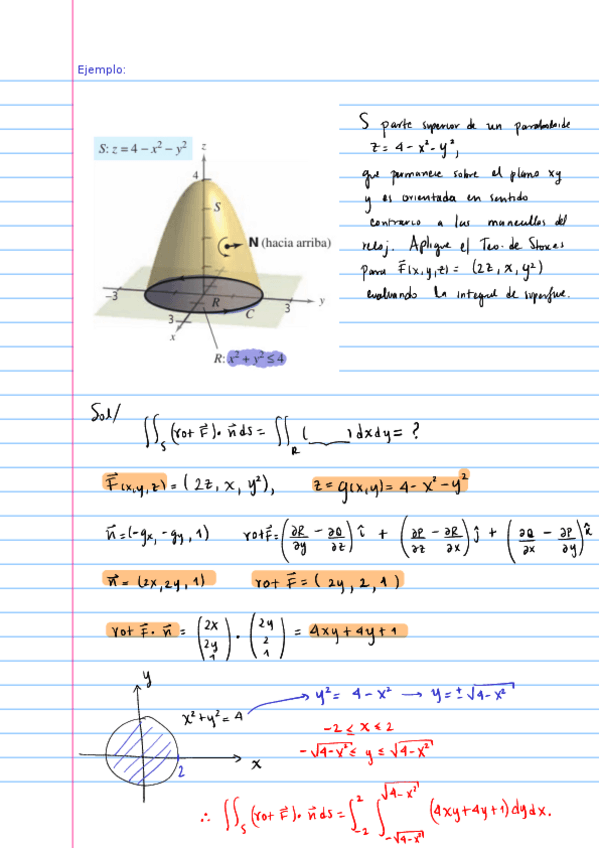 Ejemplo:
S: z = 4 − x² − y²
z
4
S
N (hacia arriba)
−3
R
y
3
C
3
x
R: x² + y² ≤ 4
S parte superior de un paraboloide
z = 4 - x² - y²,
que permanece sobre el plano xy
y es orientada en sentido
contrario a las manecillas del
reloj. Aplique el Teo. de Stokes
para F⃗(x,y,z) = (2z, x, y²)
evaluando la integral de superficie.
Sol/
∬_S (rot F⃗)· n⃗ ds = ∬_R (____) dxdy = ?
F⃗(x,y,z) = (2z, x, y²), z = g(x,y) = 4 - x² - y²
n⃗ = (-gx, -gy, 1) rot F⃗ = (∂R/∂y - ∂Q/∂z) î + (∂P/∂z - ∂R/∂x) ĵ + (∂Q/∂x - ∂P/∂y) k̂
n⃗ = (2x, 2y, 1) rot F⃗ = (2y, 2, 1)
rot F⃗ · n⃗ = (2x 2y 1) · (2y 2 1) = 4xy + 4y + 1
y
x² + y² = 4 → y² = 4 - x² → y = ± √(4-x²)
-2 ≤ x ≤ 2
-√(4-x²) ≤ y ≤ √(4-x²)
x
2
∴ ∬_S (rot F⃗)· n⃗ ds = ∫_{-2}^{2} ∫_{-√(4-x²)}^{√(4-x²)} (4xy + 4y + 1) dy dx.